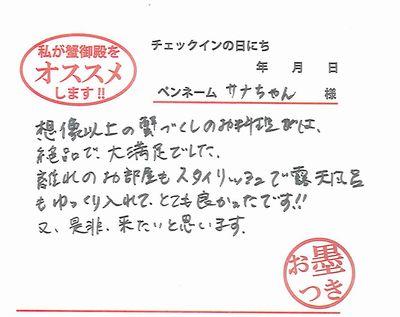 私が蟹御殿を
オススメ
します!!
チェックインの日にち
年 月 日
ペンネーム サナちゃん 様
想像以上の蟹づくしのお料理では、
絶品で、大満足でした。
離れのお部屋もスタイリッシュで露天風呂
もゆっくり入れて、とても良かったです!!
又、是非、来たいと思います。
お墨
つき